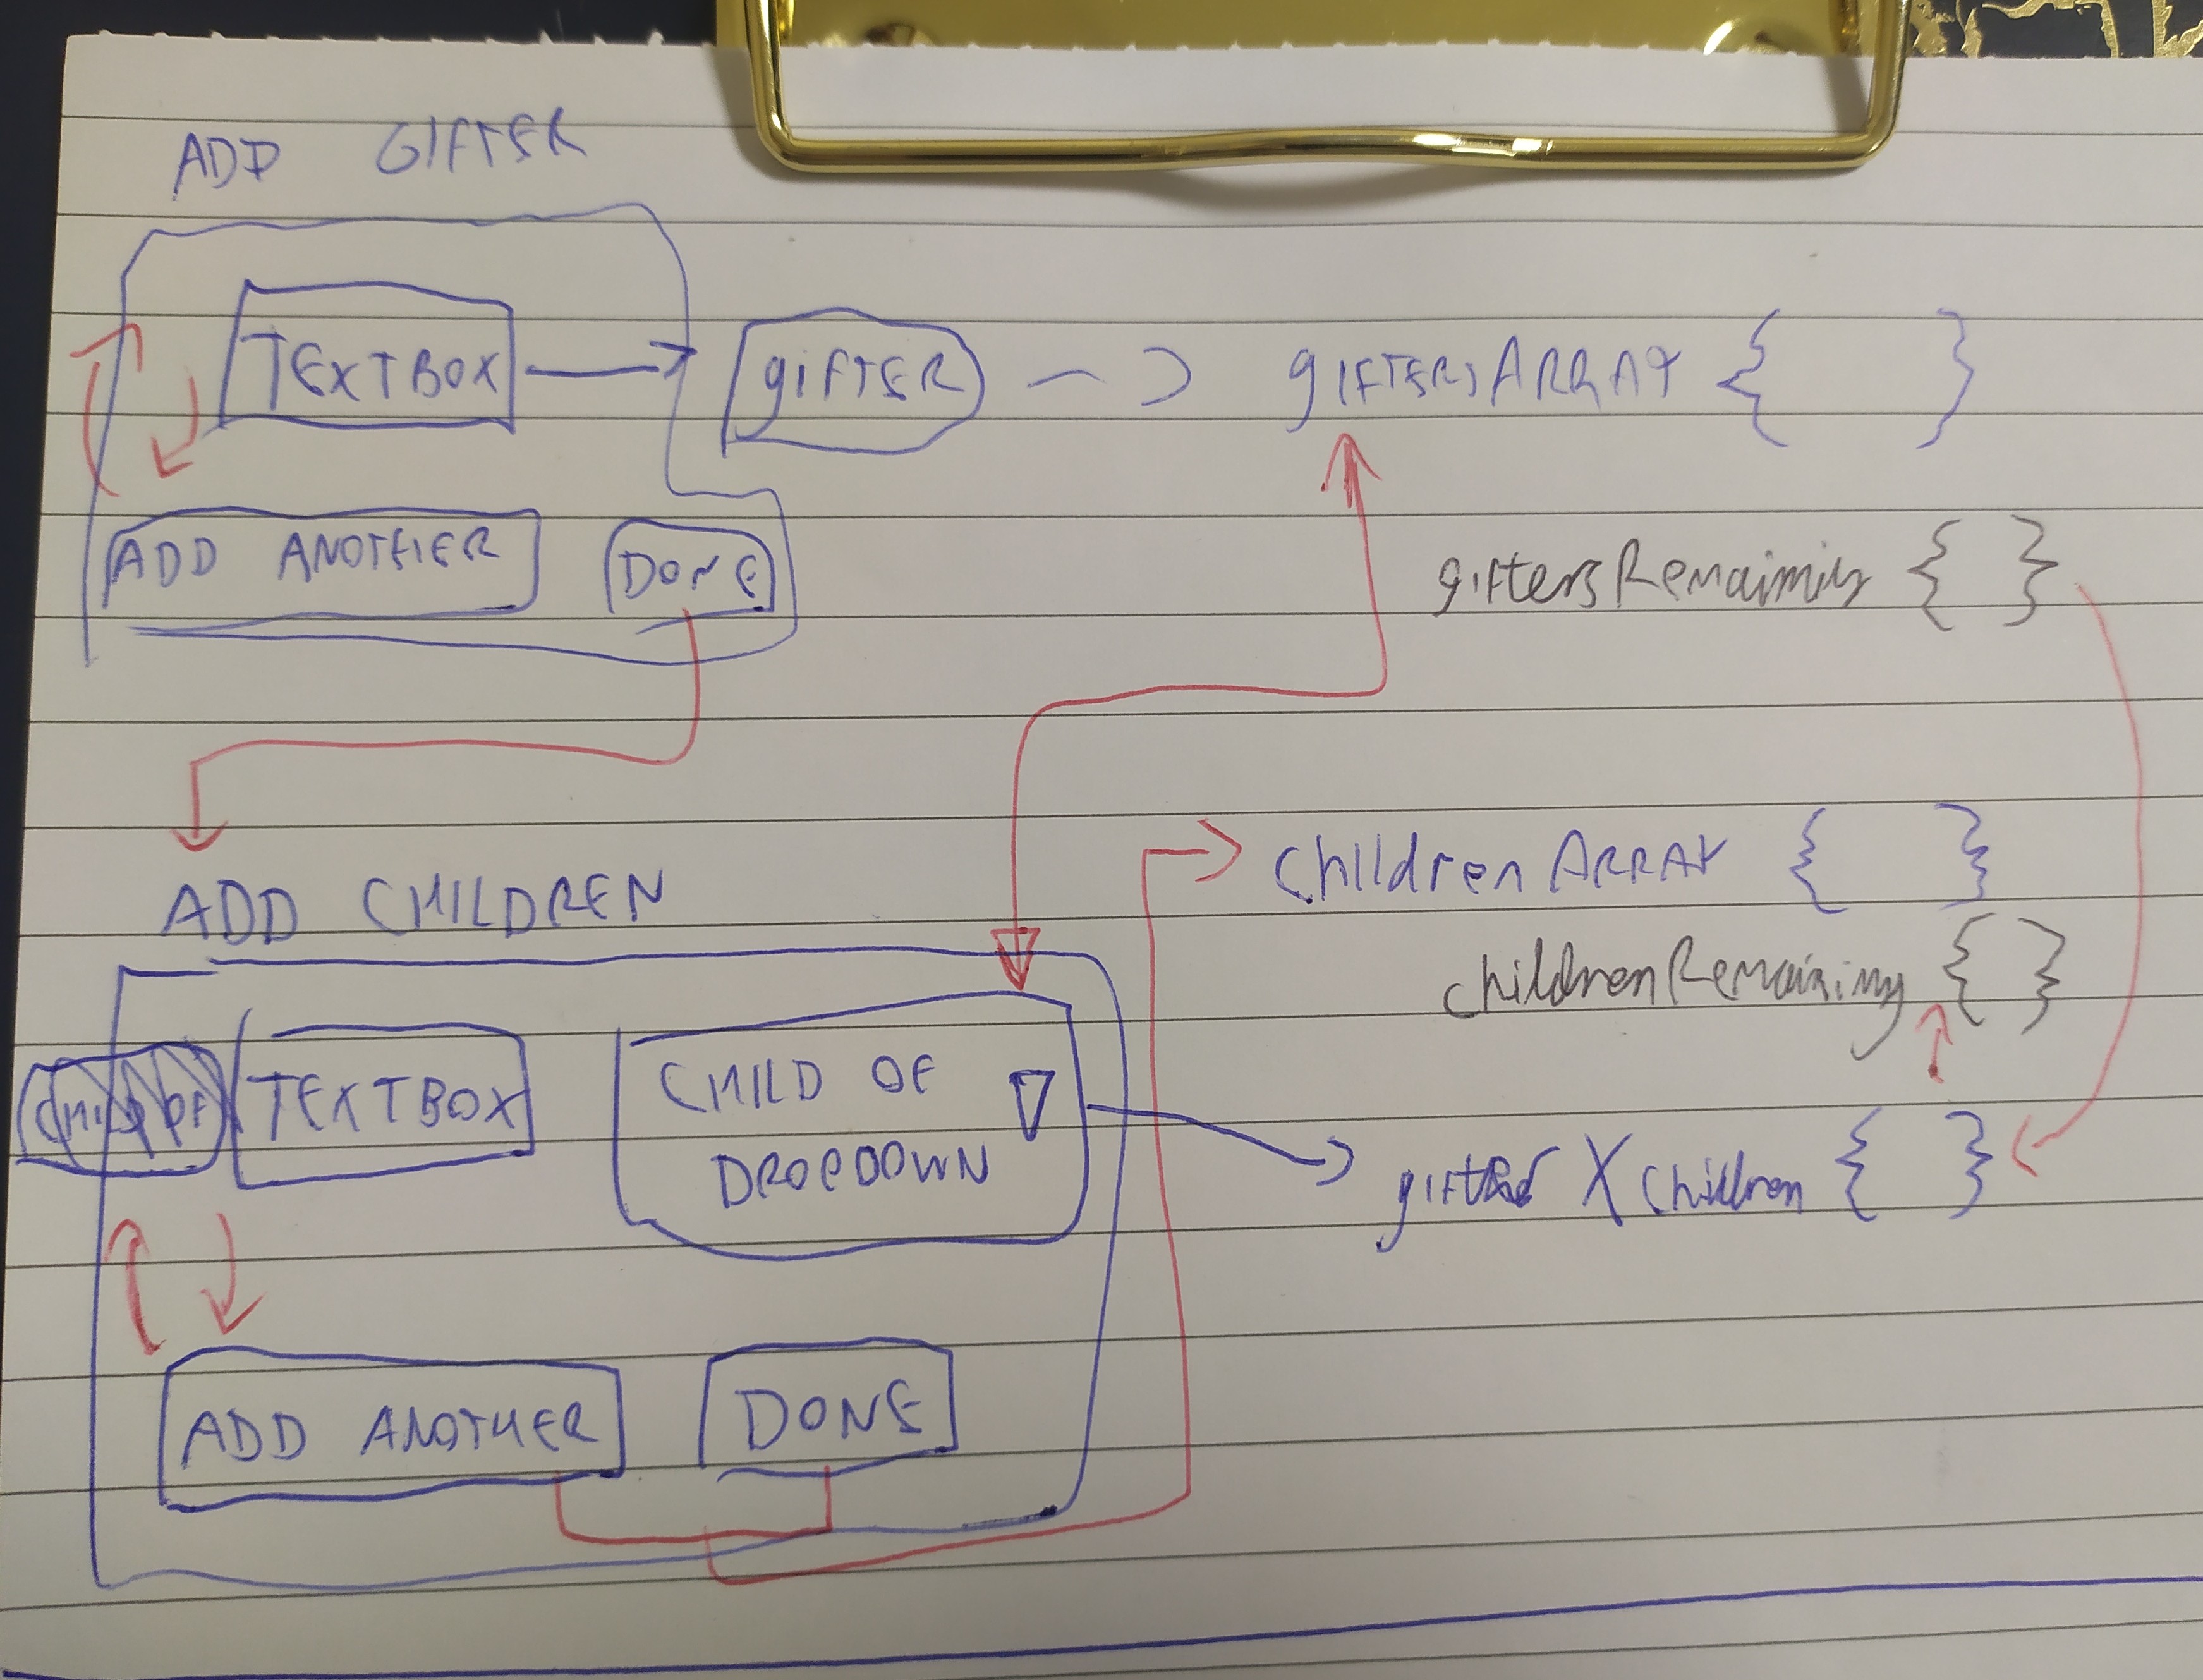 ADD GIFTER
TEXTBOX
gIFTER
gIFTERSARRAY { }
ADD ANOTHER
DONE
giftersRemaining { }
ADD CHILDREN
childrenARRAY { }
childrenRemaining { }
CHILD OF
TEXTBOX
CHILD OF
DROPDOWN
X children { }
ADD ANOTHER
DONE